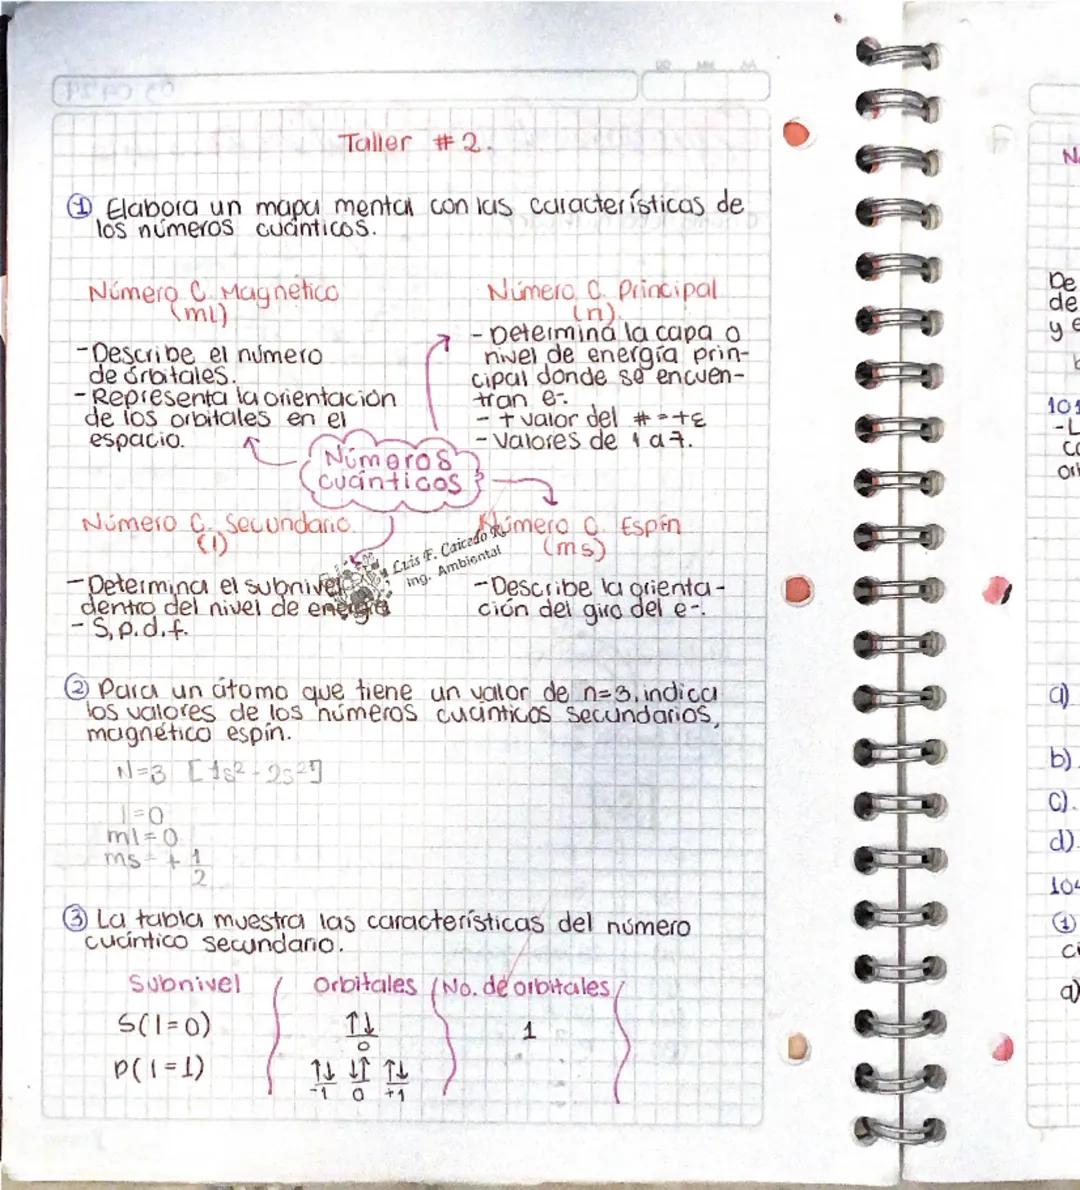 DD MM AA
Taller #2.
① Elabora un mapa mental con las características de
los números cuánticos.
Número C. Magnético
(ml)
-Describe el número
de órbitales.
-Representa la orientación
de los orbitales en el
espacio.
Número C. Principal
(n)
-Determina la capa o
nivel de energía prin-
cipal donde se encuen-
tran e-.
- + valor del # = +E
-Valores de 1 a 7.
Números
cuánticos
Número C. Secundario.
(l)
-Determina el subnivel
dentro del nivel de energía
- S,p.d.f.
Luis F. Caicedo R.
Ing. Ambiental
Número C. Espín
(ms)
-Describe la orienta-
ción del giro del e-.
② Para un átomo que tiene un valor de n=3, indica
los valores de los números cuánticos secundarios,
magnético espín.
N=3 [1s²-2s²]
l=0
ml=0
ms=+1/2
③ La tabla muestra las características del número
cuántico secundario.
Subnivel Orbitales No. de orbitales
S(l=0) ↑↓ 1
0
P(l=1) ↑↓ ↓↑ ↑↓
-1 0 +1
De
de
y e
101
-L
co
a)
b).
c).
d).
104
①
a)